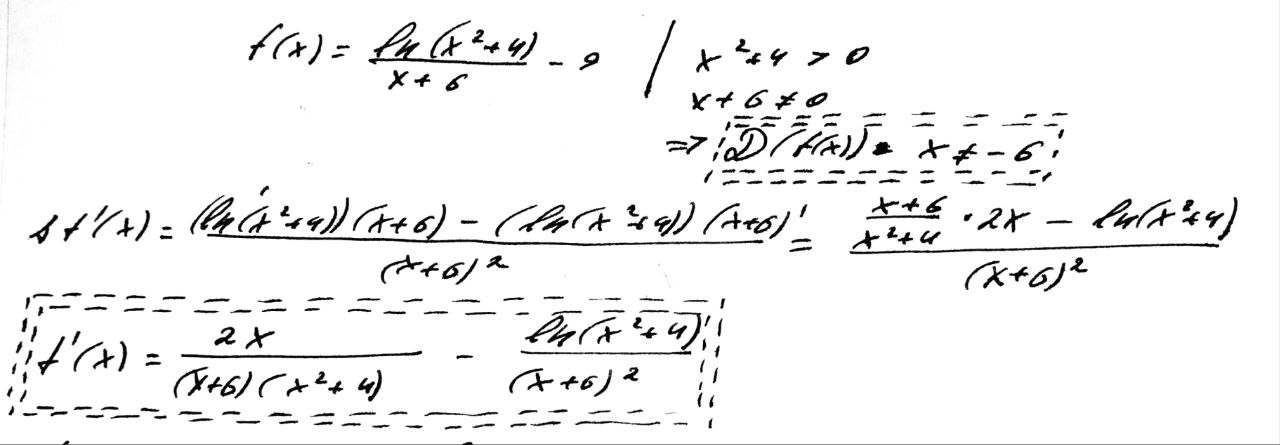 f(x) = ln(x²+4) / (x+6) - 9 | x²+4 > 0
x+6 ≠ 0
=> D(f(x)) = x ≠ -6
f'(x) = ((ln(x²+4))'(x+6) - (ln(x²+4))(x+6)') / (x+6)² = ((x+6)/(x²+4) · 2x - ln(x²+4)) / (x+6)²
f'(x) = 2x / ((x+6)(x²+4)) - ln(x²+4) / (x+6)²